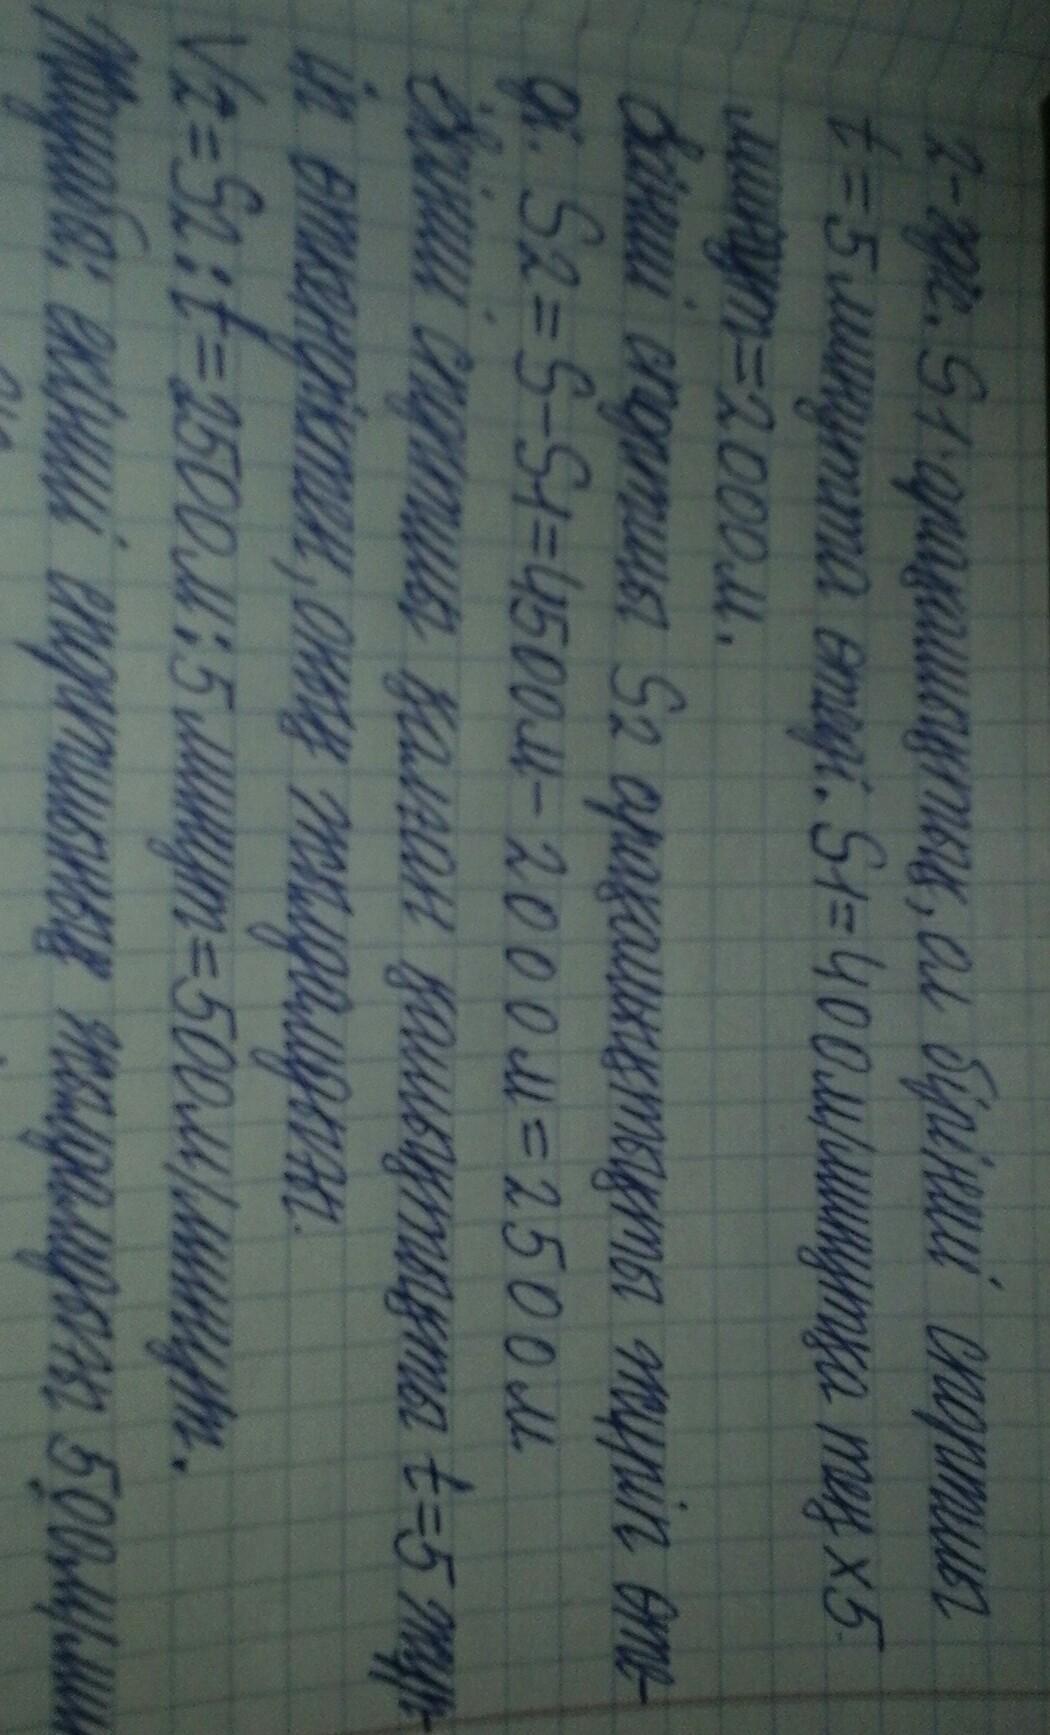 2-жс. S1 қашықтық, ал бірінші спортшы
t=5 минутта өтеді. S1=400м/минутқа тең x5
минут=2000м.
Екінші спортшы S2 арақашықтықты жүріп өте-
ді. S2=S-S1=4500м-2000м=2500м.
Екінші спортшы қалған қашықтықты t=5 жүр-
іп өткендіктен, оның жылдамдығы
V2=S2:t=2500м:5минут=500м/минут.
екінші спортшының жылдамдығы 500м/мин